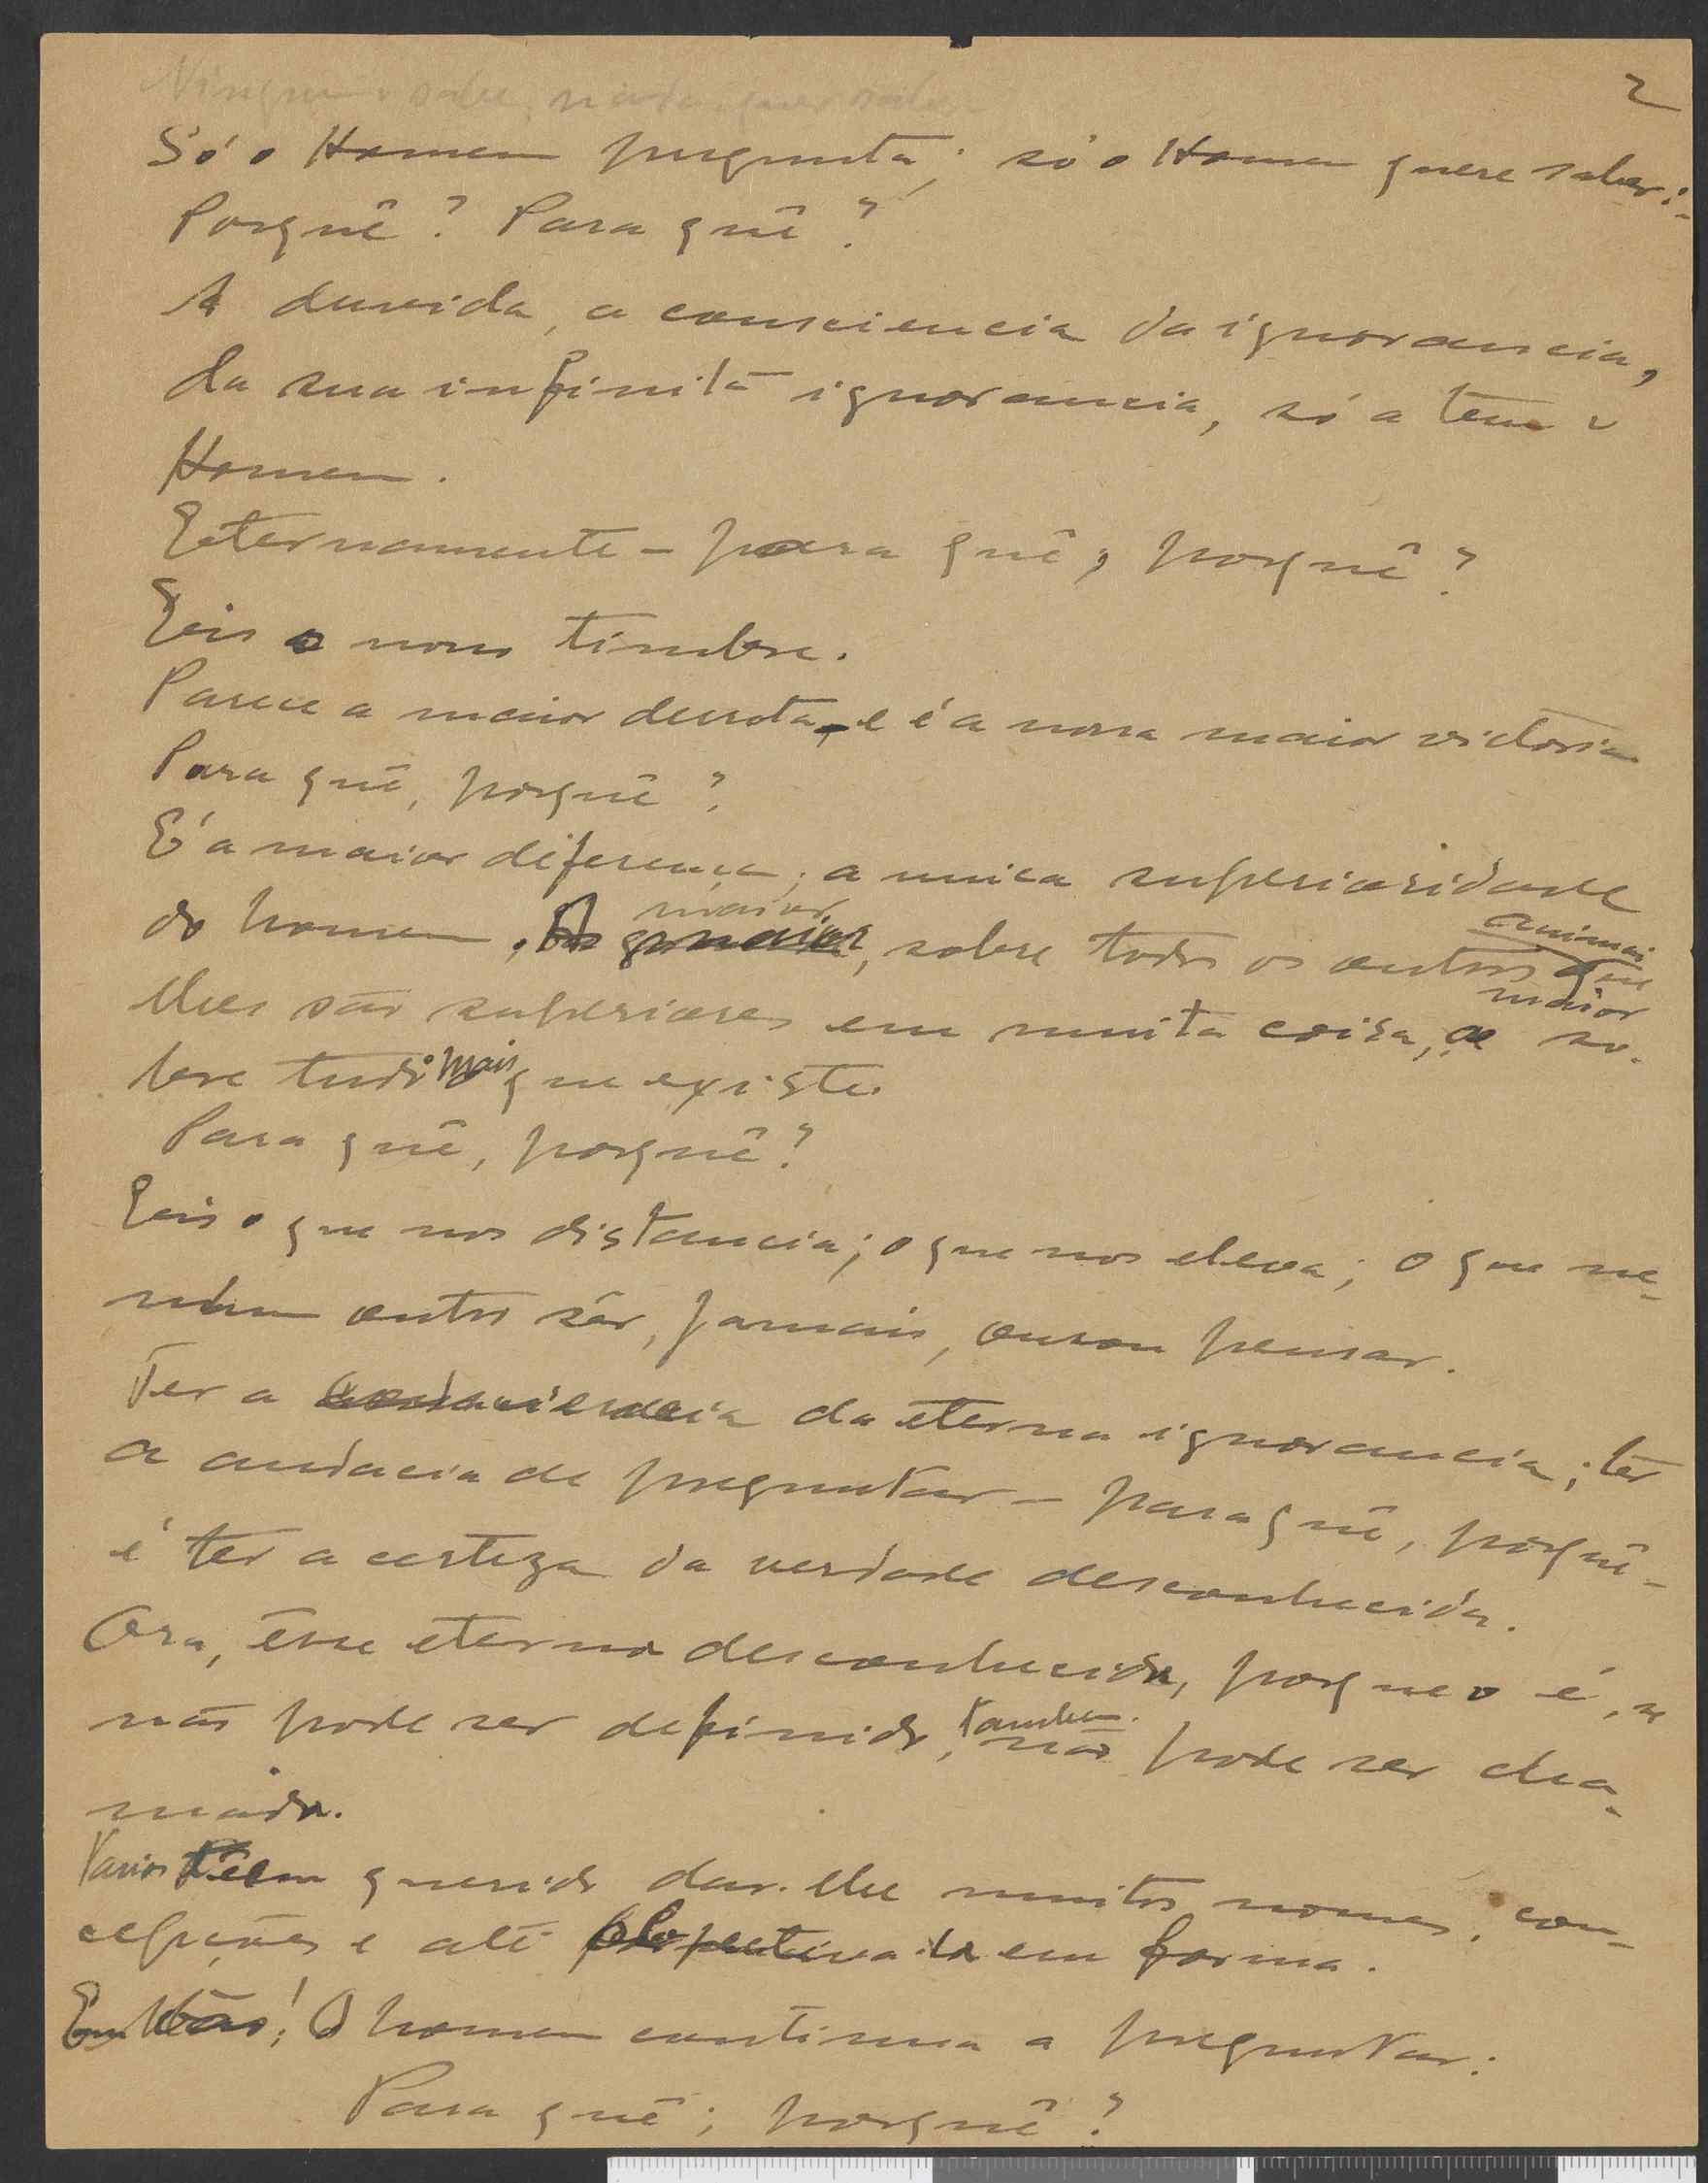 2
Ninguem sabe, nada quer saber
Só o Homem pregunta; só o Homem quere saber:-
Porquê? Para quê?
A duvida, a consciencia da ignorancia,
da sua infinita ignorancia, só a tem o
Homem.
Eternamente - para quê, porquê?
Eis o nosso timbre.
Parece a maior derrota, e é a nossa maior victoria
Para quê, porquê?
É a maior diferença; a unica superioridade
do homem, maior, sobre todos os outros animais que
lhes são superiores em muita coisa, e maior so-
bre tudo o mais que existe.
Para quê, porquê?
Eis o que nos distancia; o que nos eleva; o que ne-
nhum outro sêr, jamais, ousou pensar.
Ter a consciencia da eterna ignorancia; ter
a audacia de preguntar - para quê, porquê -
é ter a certeza da verdade desconhecida.
Ora, êsse eterno desconhecido, porque o é, se
não pode ser definido, tambem não pode ser cha-
mado.
Varios têem querido dar-lhe muitos nomes, con-
cepções e até em forma.
Em vão! O homem continua a preguntar:
Para quê; porquê?